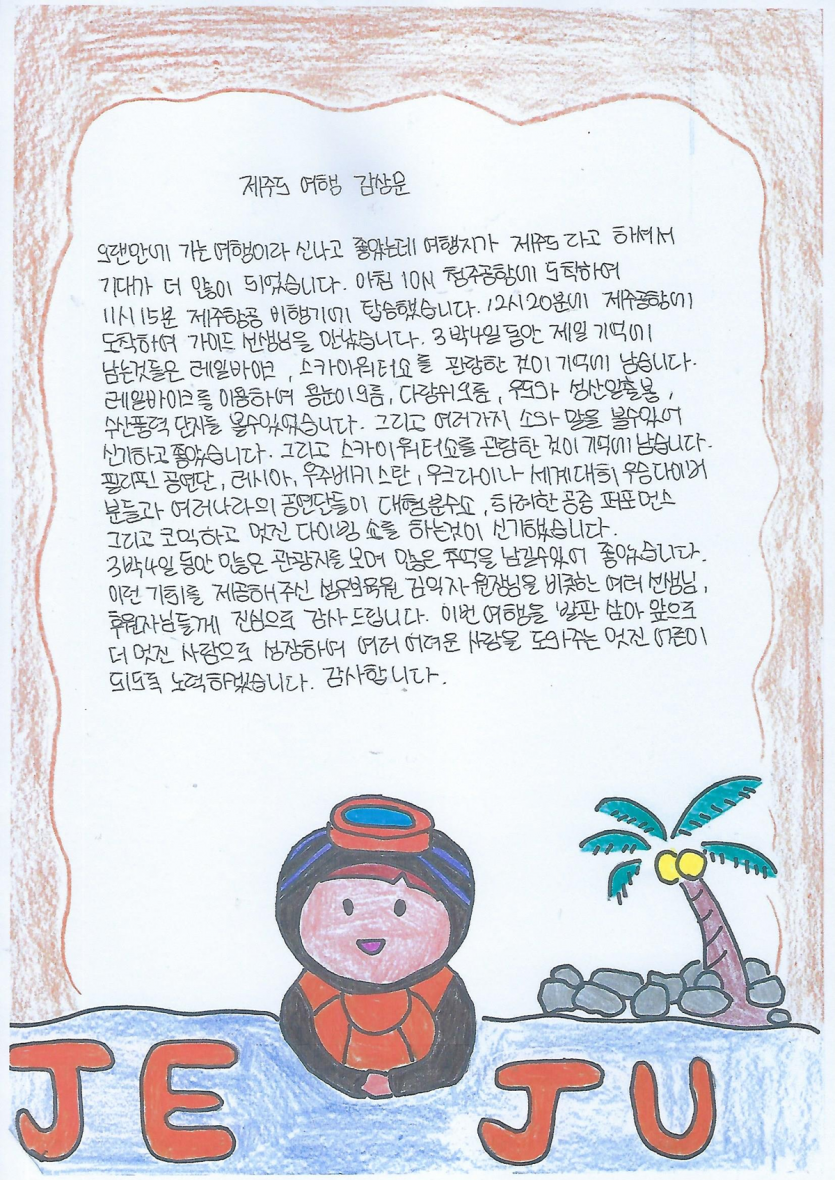 제주도 여행 감상문
오랜만에 가는 여행이라 신나고 좋았는데 여행지가 제주도 라고 하셔서
기대가 더 많이 되었습니다. 아침 10시 청주공항에 도착하여
11시 15분 제주항공 비행기에 탑승했습니다. 12시20분에 제주공항에
도착하여 가이드 선생님을 만났습니다. 3박4일 동안 제일 기억에
남는것들은 레일바이크, 스카이워터쇼를 관람한 것이 기억에 남습니다.
레일바이크를 이용하여 용눈이오름, 다랑쉬오름, 우도와 성산일출봉,
수산풍력 단지를 볼수있었습니다. 그리고 여러가지 소와 말을 볼수있어
신기하고 좋았습니다. 그리고 스카이워터쇼를 관람한 것이 기억에 남습니다.
필리핀 공연단, 러시아, 우주베키스탄, 우크라이나 세계대회 우승다이버
분들과 여러나라의 공연단들이 대형분수쇼, 화려한 공중 퍼포먼스
그리고 코믹하고 멋진 다이빙 쇼를 하는것이 신기했습니다.
3박4일 동안 많은 관광지를 보며 많은 추억을 남길수있어 좋았습니다.
이런 기회를 제공해주신 성우보육원 김익자 원장님을 비롯한 여러 선생님,
후원자님들께 진심으로 감사드립니다. 이번 여행을 발판 삼아 앞으로
더 멋진 사람으로 성장하여 여러 어려운 사람을 도와주는 멋진 어른이
되도록 노력하겠습니다. 감사합니다.
JEJU